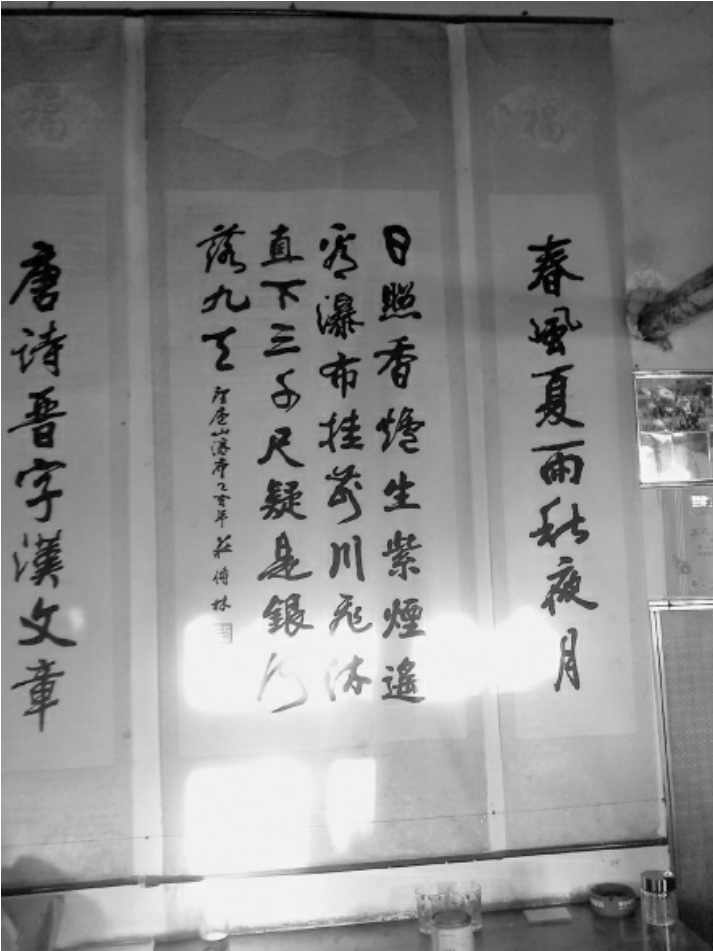 春風夏雨秋夜月
日照香爐生紫煙遙
看瀑布挂前川飛流
直下三千尺疑是銀河
落九天
望廬山瀑布乙亥年
唐詩晉字漢文章
福
福